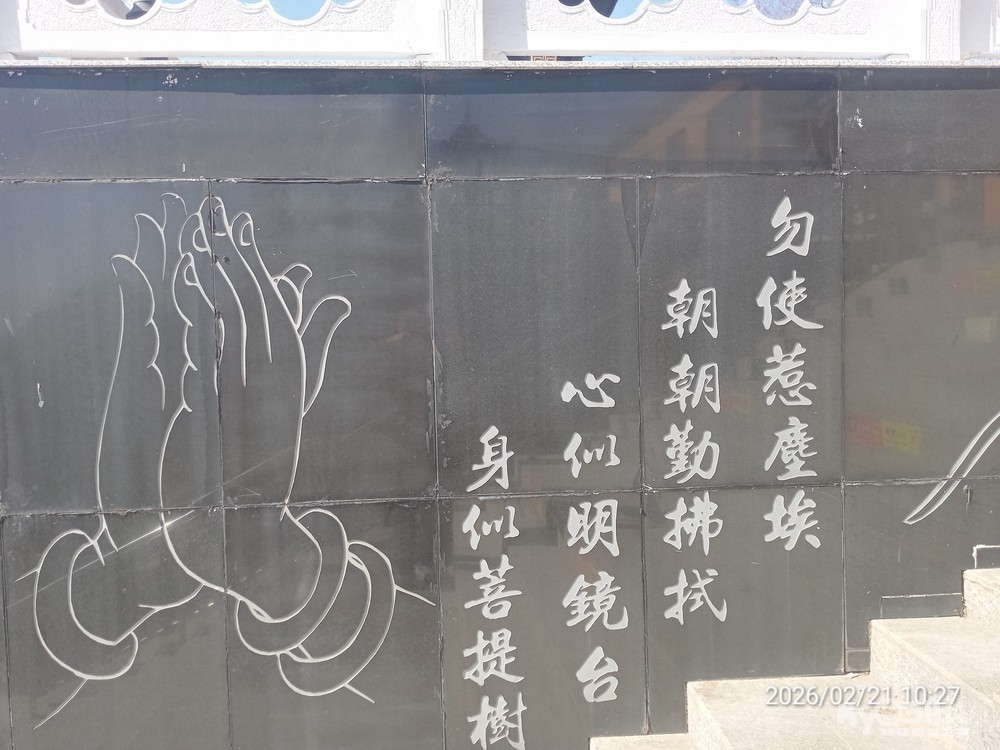 身似菩提樹
心似明鏡台
朝朝勤拂拭
勿使惹塵埃
2026/02/21 10:27